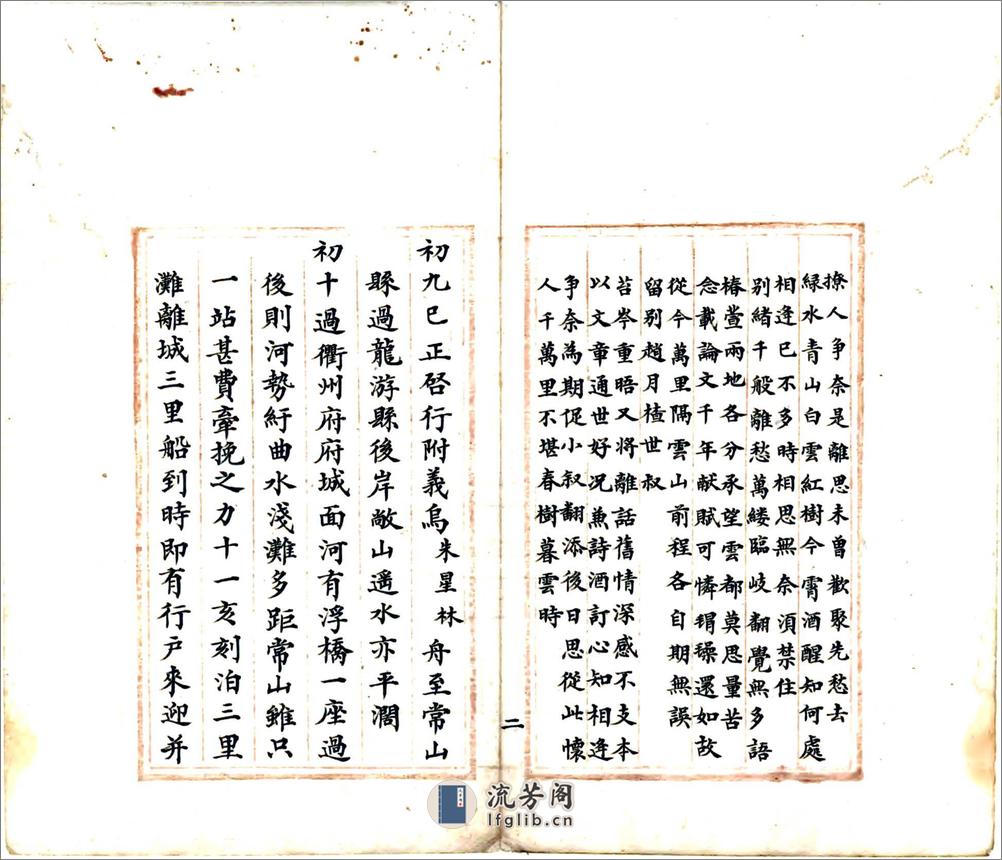 撩人争奈是離思未曾歡聚先愁去
綠水青山白雲紅樹今霄酒醒知何處
相逢已不多時相思無奈須禁住
别緒千般離愁萬縷臨岐翻覺無多語
椿萱兩地各分承望雲都莫思量苦
念載論文千年献賦可憐瑁璪還如故
從今萬里隔雲山前程各自期無誤
留别趙月楂世叔
苔岑重晤又将離話舊情深感不支本
以文章通世好况兼詩酒訂心知相逢
争奈為期促小叙翻添後日思從此懷
人千萬里不堪春樹暮雲時
二
初九巳正啓行附義烏朱星林舟至常山
縣過龍游縣後岸敞山遥水亦平濶
初十過衢州府府城面河有浮橋一座過
後則河勢紆曲水淺灘多距常山雖只
一站甚費牽挽之力十一亥刻泊三里
灘離城三里船到時即有行户來迎并
流芳阁
lfglib.cn